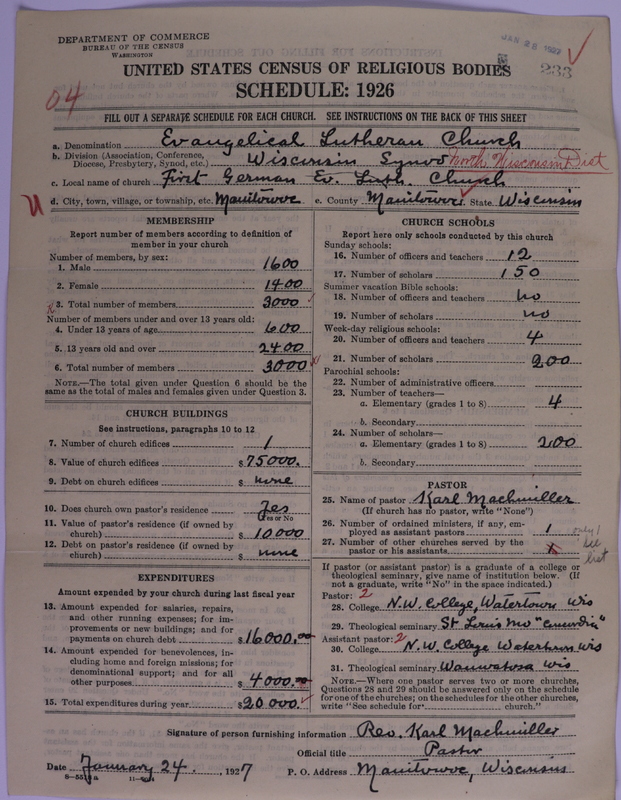 DEPARTMENT OF COMMERCE
BUREAU OF THE CENSUS
WASHINGTON
JAN 28 1927
233
UNITED STATES CENSUS OF RELIGIOUS BODIES
SCHEDULE: 1926
04
FILL OUT A SEPARATE SCHEDULE FOR EACH CHURCH. SEE INSTRUCTIONS ON THE BACK OF THIS SHEET
a. Denomination Evangelical Lutheran Church
b. Division (Association, Conference, Diocese, Presbytery, Synod, etc.) Wisconsin Synod North Wisconsin Dist
c. Local name of church First German Ev. Luth. Church
u d. City, town, village, or township, etc. Manitowoc e. County Manitowoc f. State Wisconsin
MEMBERSHIP
Report number of members according to definition of
member in your church
Number of members, by sex:
1. Male 1600
2. Female 1400
3. Total number of members 3000
Number of members under and over 13 years old:
4. Under 13 years of age 600
5. 13 years old and over 2400
6. Total number of members 3000
NOTE.—The total given under Question 6 should be the
same as the total of males and females given under Question 3.
CHURCH BUILDINGS
See instructions, paragraphs 10 to 12
7. Number of church edifices 1
8. Value of church edifices $ 75000.
9. Debt on church edifices $ none
10. Does church own pastor's residence? Yes
(Yes or No)
11. Value of pastor's residence (if owned by
church) $ 10000
12. Debt on pastor's residence (if owned by
church) $ none
EXPENDITURES
Amount expended by your church during last fiscal year
13. Amount expended for salaries, repairs,
and other running expenses; for im-
provements or new buildings; and for
payments on church debt $ 16000.00
14. Amount expended for benevolences, in-
cluding home and foreign missions; for
denominational support; and for all
other purposes $ 4000.00
15. Total expenditures during year $ 20000.
CHURCH SCHOOLS
Report here only schools conducted by this church
Sunday schools:
16. Number of officers and teachers 12
17. Number of scholars 150
Summer vacation Bible schools:
18. Number of officers and teachers no
19. Number of scholars no
Week-day religious schools:
20. Number of officers and teachers 4
21. Number of scholars 200
Parochial schools:
22. Number of administrative officers
23. Number of teachers—
a. Elementary (grades 1 to 8) 4
b. Secondary
24. Number of scholars—
a. Elementary (grades 1 to 8) 200
b. Secondary
PASTOR
25. Name of pastor Karl Machmiller
(If church has no pastor, write "None")
26. Number of ordained ministers, if any, em-
ployed as assistant pastors 1 only 1
27. Number of other churches served by the
pastor or his assistants
If pastor (or assistant pastor) is a graduate of a college or
theological seminary, give name of institution below. (If
not a graduate, write "No" in the space indicated.)
Pastor: 2
28. College N.W. College, Watertown Wis
29. Theological seminary St Louis Mo "Concordia"
Assistant pastor: 2
30. College N.W. College Watertown Wis
31. Theological seminary Wauwatosa Wis
NOTE.—Where one pastor serves two or more churches,
Questions 28 and 29 should be answered only on the schedule
for one of the churches; on the schedules for the other churches,
write "See schedule for church."
Signature of person furnishing information Rev. Karl Machmiller
Official title Pastor
Date January 24, 1927 P. O. Address Manitowoc, Wisconsin